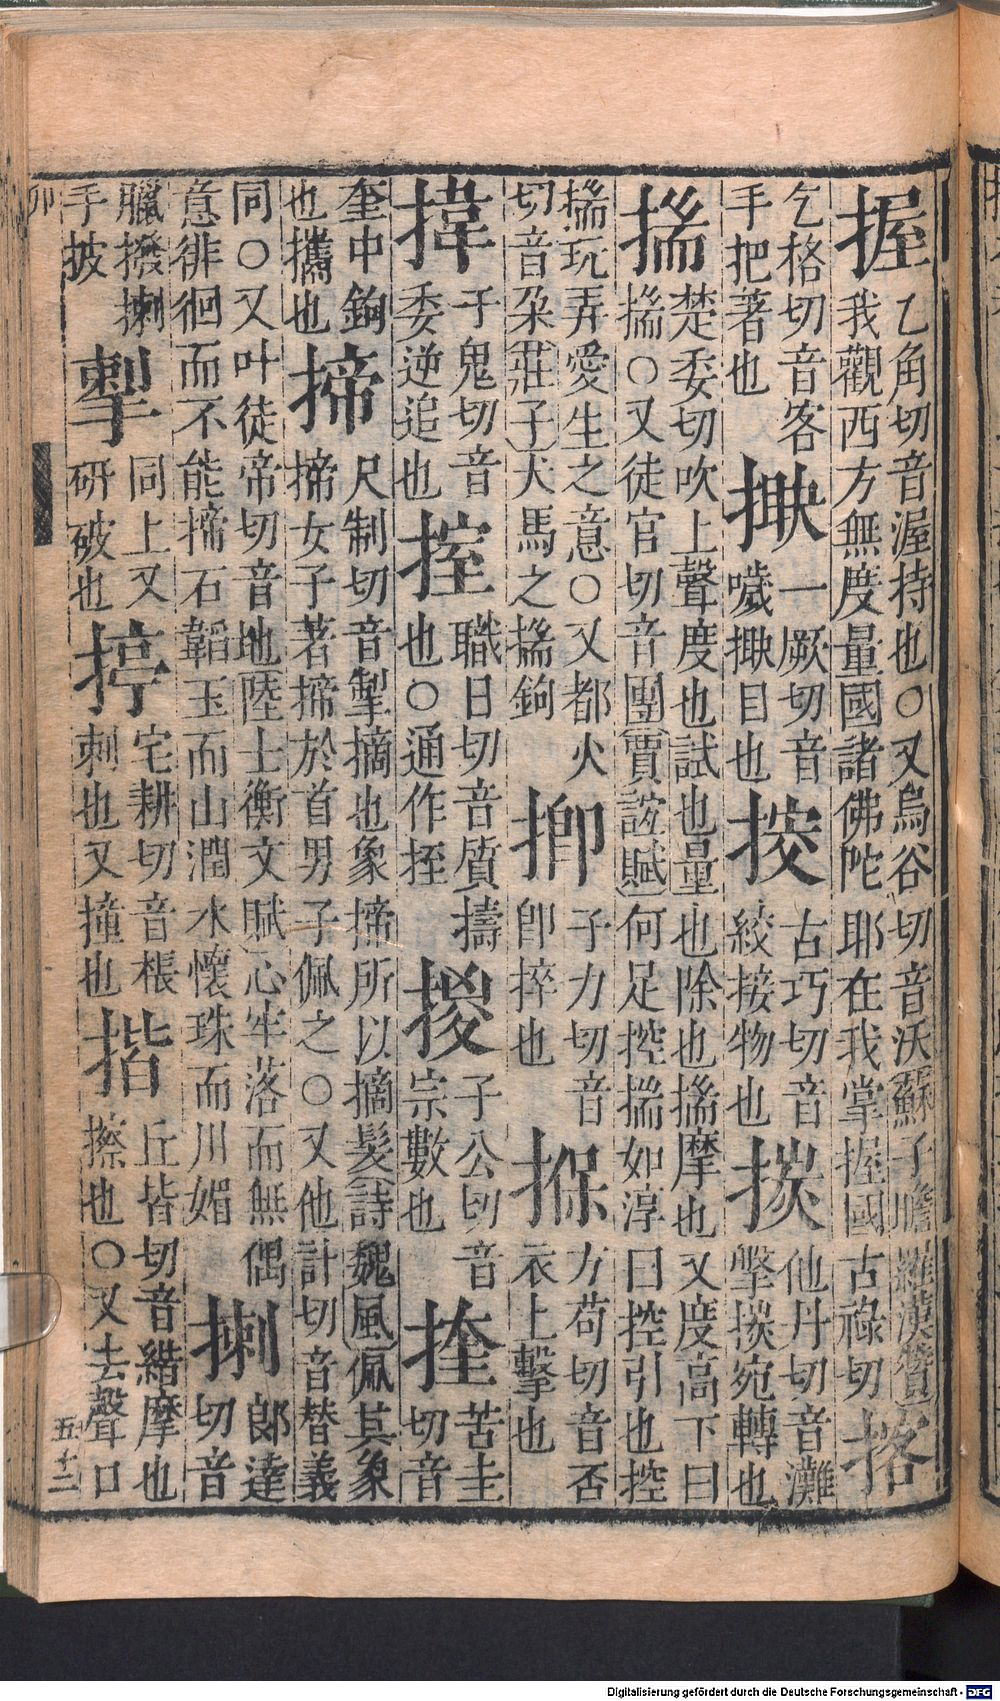 握 乙角切音渥持也○又烏谷切音沃(蘇子瞻羅漢贊)
我觀西方無度量國諸佛陀耶在我掌握國古祿切 揢
乞格切音客
手把著也
一厥切音
噦 目也
古巧切音
絞接物也
他丹切音灘
宛轉也
揣 楚委切吹上聲度也試也量也除也揣摩也又度高下曰
揣○又徒官切音團(賈誼賦)何足控揣如淳曰控引也控
揣玩弄愛生之意○又都火
切音朶(莊子)犬馬之揣鉤
揤 子力切音
卽捽也
方苟切音否
衣上擊也
于鬼切音
委逆追也
職日切音質擣
也○通作挃
子公切音
宗數也
苦圭切音
奎中鉤
也攜也
揥 尺制切音掣摘也象揥所以摘髮(詩魏風)佩其象
揥女子著揥於首男子佩之○又他計切音替義
同○又叶徒帝切音地陸士衡文賦心牢落而無偶
意徘徊而不能揥石韞玉而山潤水懷珠而川媚
揦 郎達
切音
臘撥揦
手披
同上又
研破也
揨 宅耕切音棖
刺也又撞也
揩 丘皆切音 摩也
擦也○又去聲口
卯
五十二
Digitalisierung gefördert durch die Deutsche Forschungsgemeinschaft - DFG